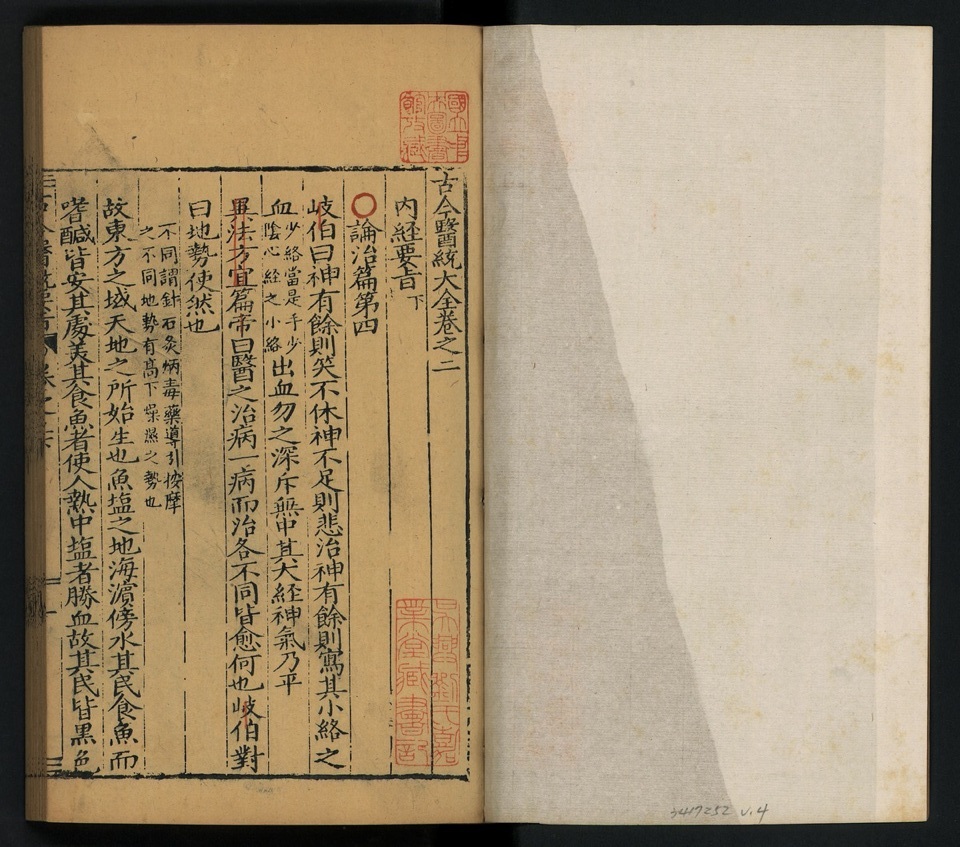 古今醫統大全卷之二
內經要旨下
○論治篇第四
岐伯曰神有餘則笑不休神不足則悲治神有餘則寫其小絡之
血少絡當是手少陰心經之小絡出血勿之深斥無中其大經神氣乃平
異法方宜篇帝曰醫之治病一病而治各不同皆愈何也岐伯對
曰地勢使然也
不同謂針石灸焫毒藥導引按摩
之不同地勢有高下燥濕之勢也
故東方之域天地之所始生也魚塩之地海濵傍水其民食魚而
嗜醎皆安其處美其食魚者使人熱中塩者勝血故其民皆黒色
國立北平圖書館收藏
吳興劉氏嘉業堂藏書記
3417252 v.4